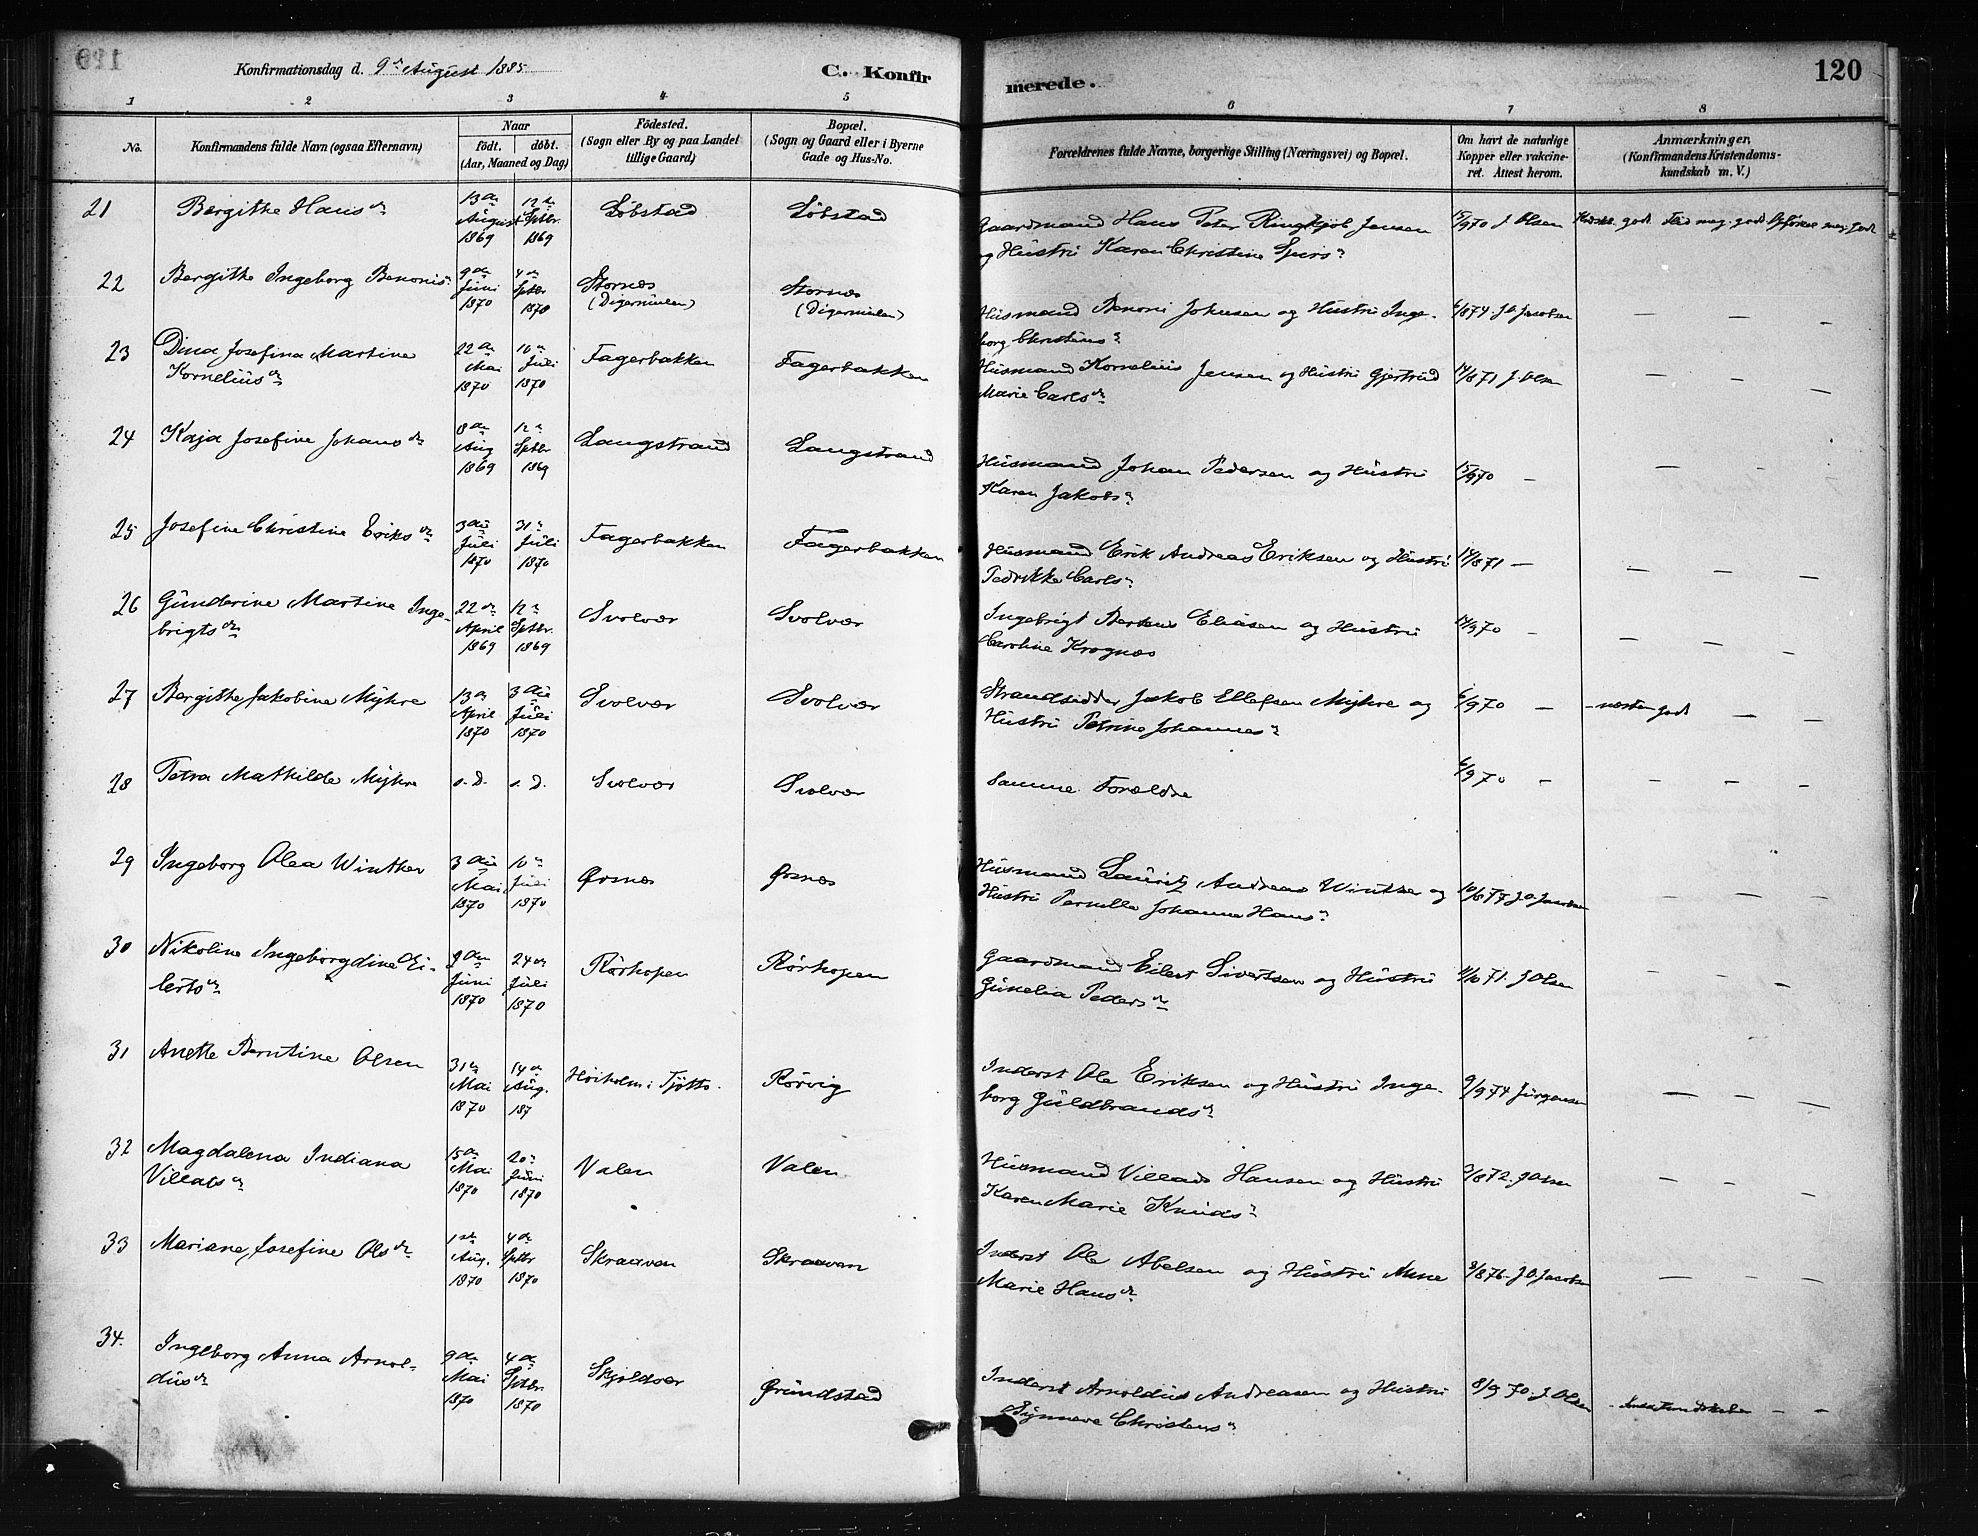 Konfirmationsdag d. 9de August 1885.
C. Konfirmerede.
120
1 2 3 4 5 6 7 8
No.
Konfirmandens fulde Navn (ogsaa Efternavn)
Naar
födt. döbt.
(Aar, Maaned og Dag)
Födested.
(Sogn eller By og paa Landet
tillige Gaard)
Bopæl.
(Sogn og Gaard eller i Byerne
Gade og Hus-No.
Forældrenes fulde Navne, borgerlige Stilling (Næringsvei) og Bopæl.
Om havt de naturlige
Kopper eller vakcine-
ret. Attest herom.
Anmærkninger,
(Konfirmandens Kristendoms-
kundskab m. V.)
21 Bergithe Hansdr 13de August 1869 12te Septbr. 1869 Løbstad Løbstad
Gaardmand Hans Peter Ringkjøb Jensen
og Hustru Karen Christine Sjursdr
15/9 70 J Olsen
22 Bergithe Ingeborg Benonisdr 9de Juni 1870 4de Septbr 1870 Stornæs (Digermulen) Stornæs (Digermulen)
Husmand Benoni Johnsen og Hustru Inge-
borg Christensdr
6/8 74. J.O. Jacobsen — — —
23 Dina Josefina Martine
Korneliusdr 22de Mai 1870 10de Juli 1870 Fagerbakken Fagerbakken
Husmand Kornelius Jensen og Hustru Gjertrud
Marie Carlsdr
14/8 71 J Olsen — — —
24 Kaja Josefine Johansdr 8de Aug 1869 12te Septbr 1869 Langstrand Langstrand
Husmand Johan Pedersen og Hustru
Karen Jakobsdr
15/9 70 — — — —
25 Josefine Christine Eriksdr 3die Juli 1870 31te Juli 1870 Fagerbakken Fagerbakken
Husmand Erik Andreas Eriksen og Hustru
Pedrikke Carlsdr
14/8 71 — — — —
26 Gunderine Martine Inge-
brigtsdr 22de April 1869 12te Septbr. 1869 Svolvær Svolvær
Ingebrigt Berteus Eliasen og Hustru
Caroline Krognæs
14/9 70 — — — —
27 Bergithe Jakobine Myhre 13de April 1870 3die Juli 1870 Svolvær Svolvær
Strandsidder Jakob Ellefsen Myhre og
Hustru Petrine Johannesdr
6/9 70 — næsten godt — —
28 Petra Mathilde Myhre s. D. s. D. Svolvær Svolvær
Samme Forældre
6/9 70 — — — —
29 Ingeborg Olea Winther 3die Mai 1870 10de Juli 1870 Ørsnæs Ørsnæs
Husmand Lauritz Andreas Winther og
Hustru Pernille Johanna Hansdr
10/8 77 J.O. Jacobsen — — —
30 Nikoline Ingeborgdine Ei-
lertsdr 9de Juni 1870 24de Juli 1870 Rørhopen Rørhopen
Gaardmand Eilert Sivertsen og Hustru
Gunelia Pedersdr
11/10 71. J Olsen — — —
31 Anette Berntine Olsen 31te Mai 1870 14de Aug. 187 Høiholm i Tjøtto. Rørvig
Inderst Ole Eriksen og Hustru Inge-
borg Guldbrandsdr
9/9 74 Jürgensen — — —
32 Magdalena Indiana
Villatsdr 15de Mai 1870 20de Juni 1870 Valen Valen
Husmand Villads Hansen og Hustru
Karen Marie Knudsdr
2/8 72. J Olsen — — —
33 Mariane Josefine Olsdr 1ste Aug. 1870 4de Septbr 1870 Skraaven Skraaven
Inderst Ole Abelsen og Hustru Anne
Marie Hansdr
3/8 76. J.O. Jacobsen — — —
34. Ingeborg Anna Arnol-
dusdr 9de Mai 1870 4de Septbr. 1870 Skjoldvær Grundstad
Inderst Arnoldus Andreasen og Hustru
Synneve Christensdr
8/9 70. J. Olsen — —